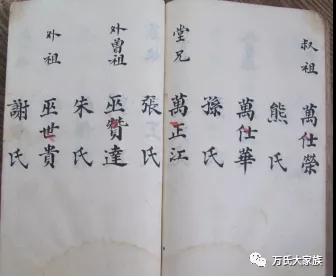 叔祖
萬仕榮
熊氏
萬仕華
孫氏
堂兄
萬正江
張氏
外曾祖
巫贊達
朱氏
外祖
巫世貴
謝氏
万氏大家族